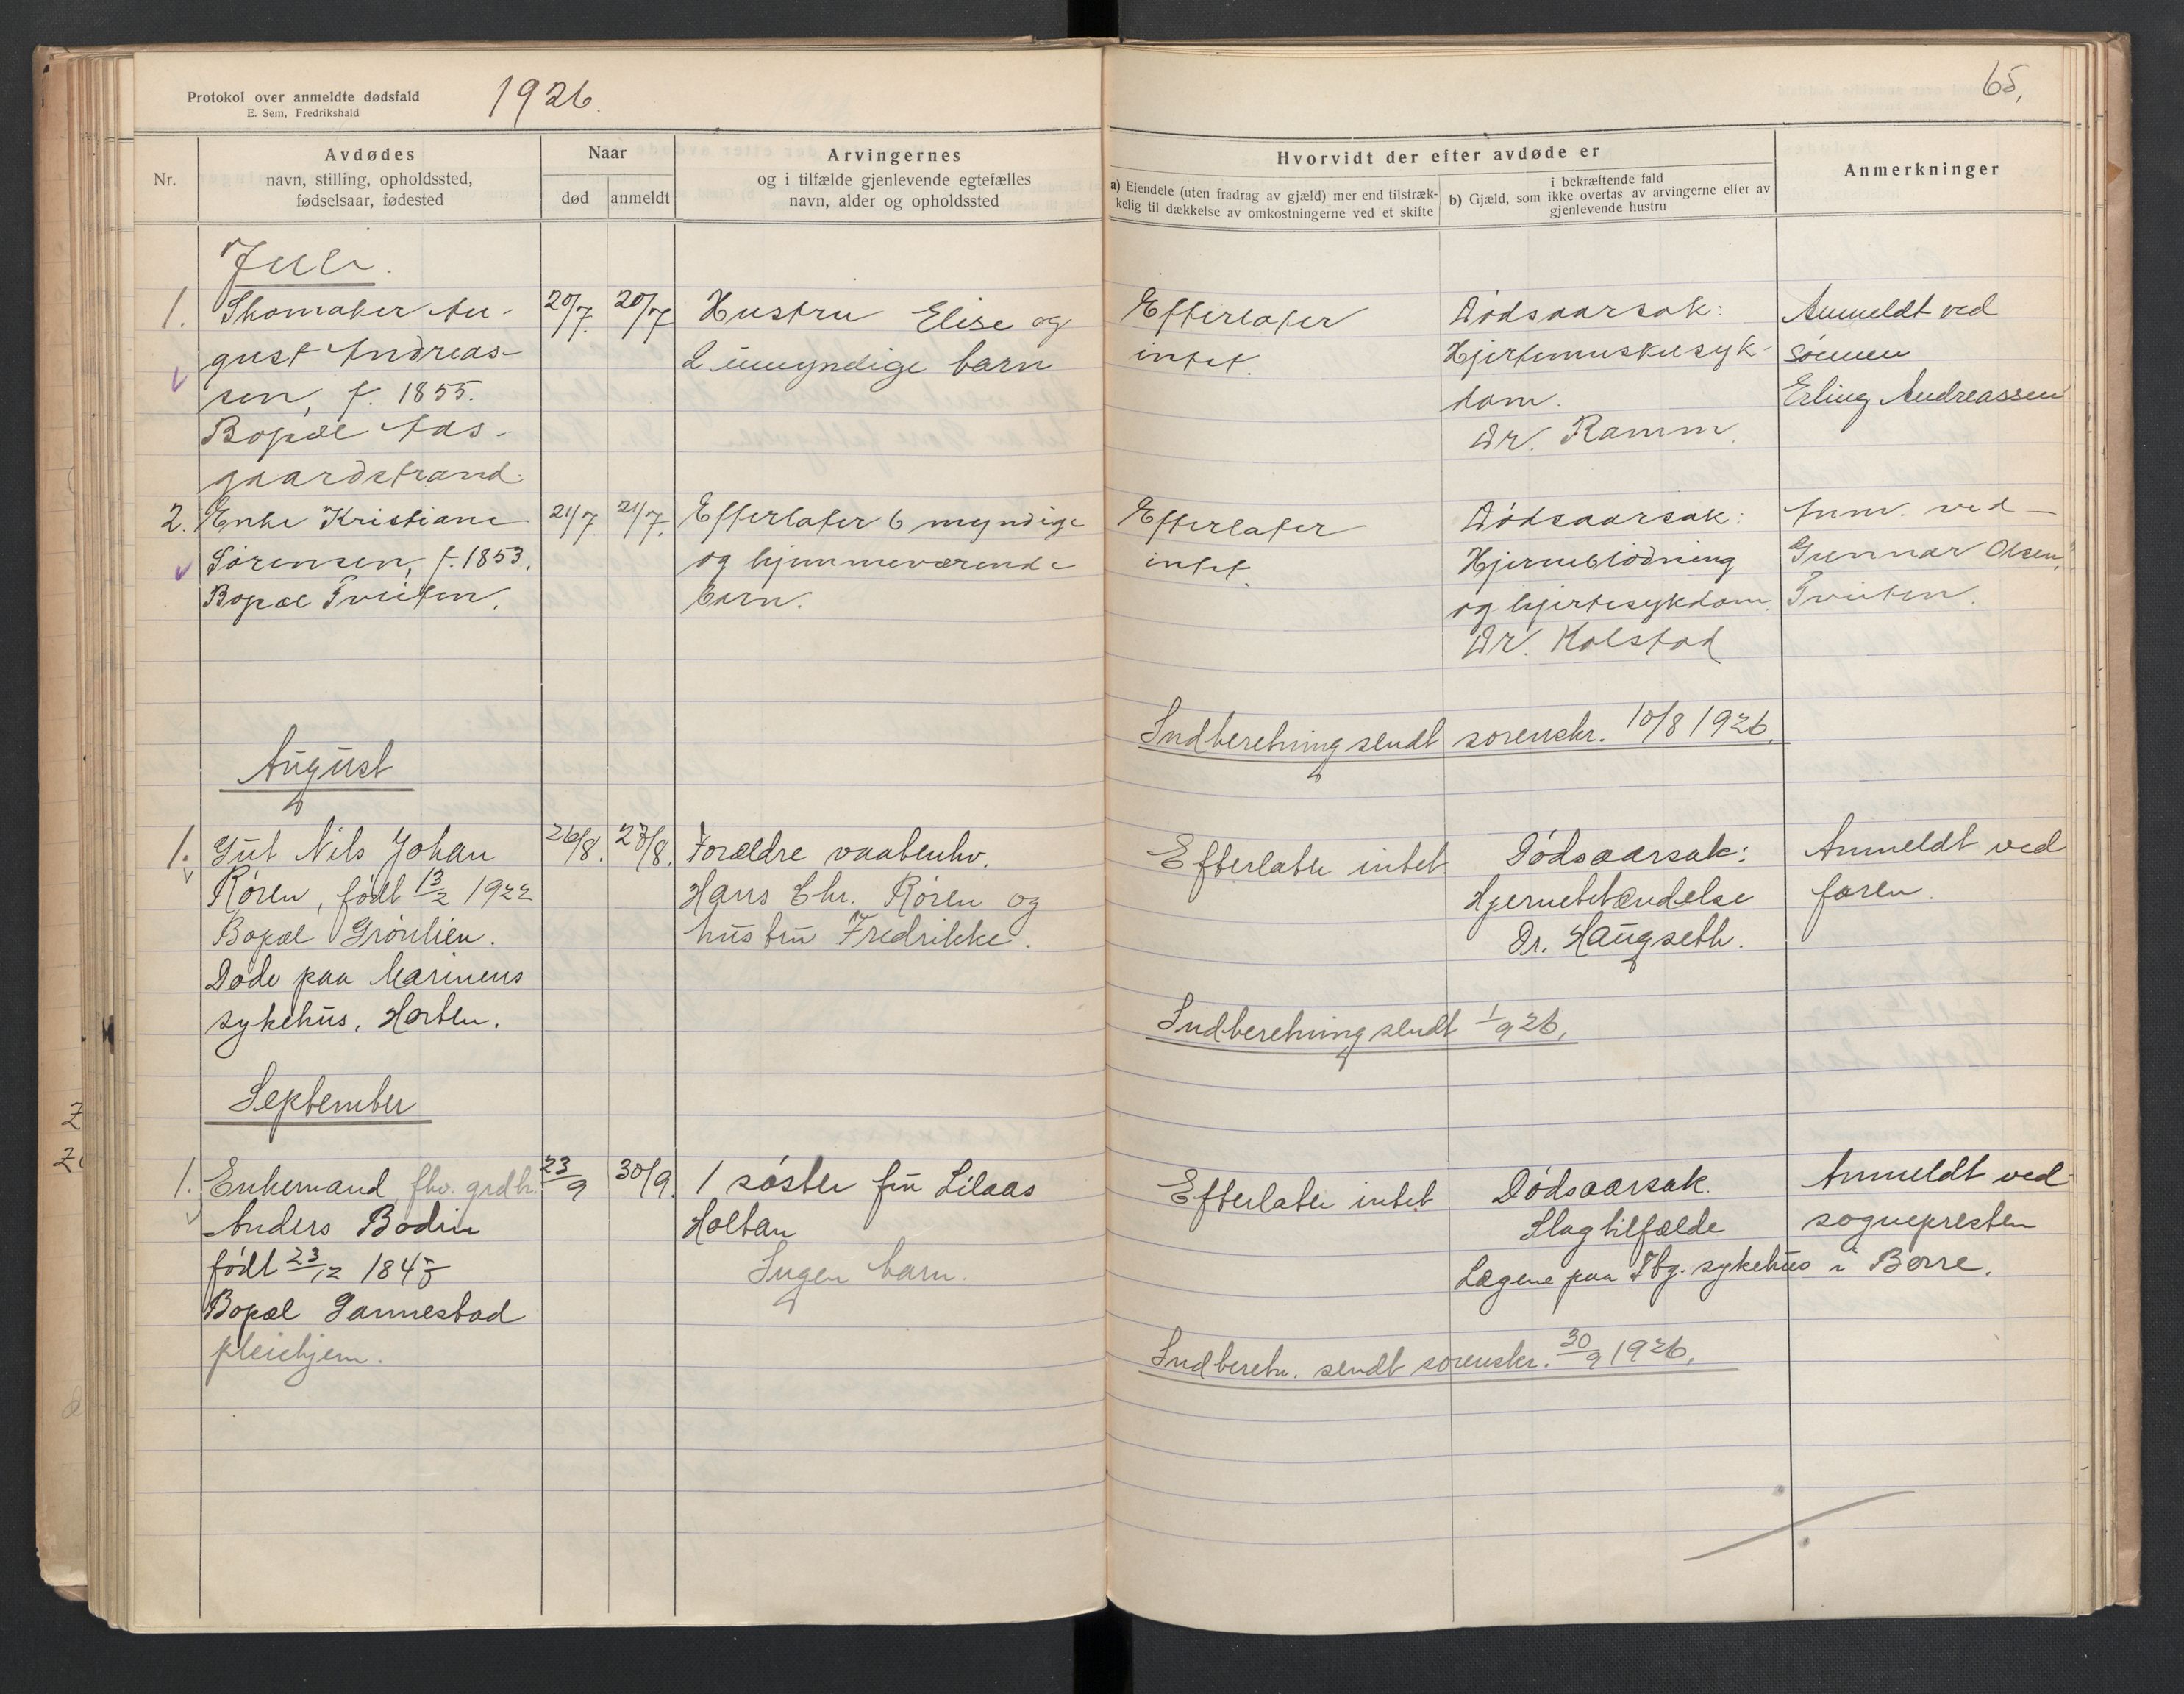 Protokol over anmeldte dødsfald
E. Sem, Fredrikshald
1926.
65.
Nr.
Avdødes
navn, stilling, opholdssted,
fødselsaar, fødested
Naar
død
anmeldt
Arvingernes
og i tilfælde gjenlevende egtefælles
navn, alder og opholdssted
Hvorvidt der efter avdøde er
a) Eiendele (uten fradrag av gjæld) mer end tilstræk-
kelig til dækkelse av omkostningerne ved et skifte
i bekræftende fald
b) Gjæld, som ikke overtas av arvingerne eller av
gjenlevende hustru
Anmerkninger
Juli.
1. Skomaker Au-
gust Andreas-
sen, f. 1855.
Bopæl Aas-
gaardstrand.
20/7. 20/7
Hustru Elise og
2 umyndige barn
Efterlater
intet.
Dødsaarsak:
Hjertemuskelsyk-
dom.
Dr. Ramm.
Anmeldt ved
sønnen
Erling Andreassen
2. Enke Kristiane
Sørensen, f. 1853.
Bopæl Tveiten.
21/7. 21/7.
Efterlater 6 myndige
og hjemmeværende
barn.
Efterlater
intet.
Dødsaarsak:
Hjerneblødning
og hjertesykdom.
Dr. Kolstad
Anm. ved
Gunnar Olsen,
Tveiten.
Indberetning sendt sorenskr. 10/8 1926.
August
1. Gut Nils Johan
Røren, født 13/2 1922
Bopæl Grønlien.
Døde paa Marinens
sykehus, Horten.
26/8. 27/8.
Forældre vaabenhv.
Hans Chr. Røren og
hustru Fredrikke.
Efterlater intet.
Dødsaarsak:
Hjernebetændelse
Dr. Haugseth.
Anmeldt ved
faren.
Indberetning sendt 1/9 26.
September
1. Enkemand, fhv. grdbr.
Anders Bodin
født 23/12 1847
Bopæl Gannestad
pleiehjem.
23/9 30/9.
1 søster fru Lilaas
Holtan
Ingen barn.
Efterlater intet
Dødsaarsak.
Slagtilfælde
Lægene paa Tbg. sykehus
Anmeldt ved
sognepresten
i Borre.
Indberetn. sendt sorenskr. 30/9 1926.